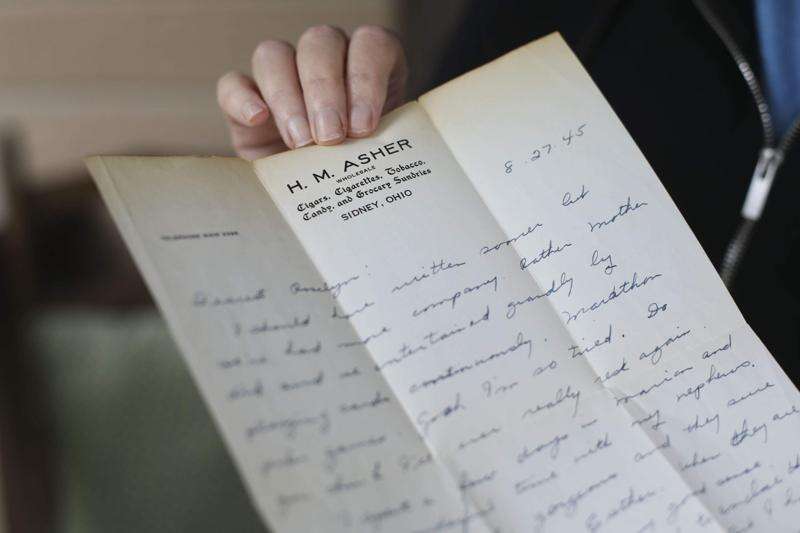 H. M. ASHER
WHOLESALE
Cigars, Cigarettes, Tobacco,
Candy, and Grocery Sundries
SIDNEY, OHIO
8.27.45
TELEPHONE MAIN
Dearest
I should have written sooner but
we've had more company. Rather Mother
and and we entertained grandly by
playing cards continuously. Marathon
poker games. Gosh I'm so tired. Do
you think I'll ever really rest again.
I spent a few days Marian and
time with my nephews.
gorgeous and they sure
Esther. when they are
good sense.